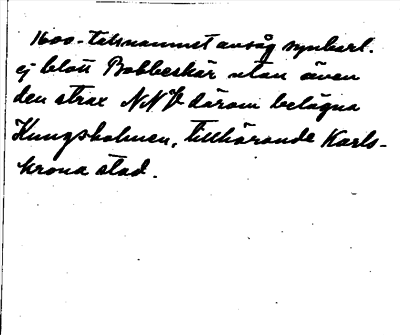 1600-talsnamnet avsåg synbarl.
ej blott Bobbeskär utan även
den strax NNV därom belägna
Kungsholmen, tillhörande Karls-
krona stad.